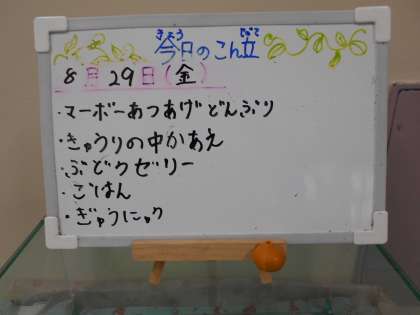 今日のこん立
きょう じだて
8月29日(金)
・マーボーあつあげどんぶり
・きゅうりの中かあえ
・ぶどうゼリー
・ごはん
・ぎゅうにゅう